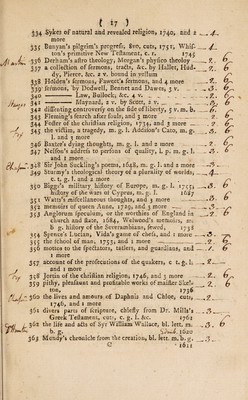 ( 17 )
334 Sykes of natural and revealed religion, 1740, and 2 more
335 Bunyan's pilgrim's progress, 8vo. cuts, 1751, Whiston's primitive New Testament, c. t. 1745
336 Derham's astro theology, Morgan's physico theoloy 2. 6
337 a collection of sermons, tracts, &c. by Hallet, Huddy, Pierce, &c. 2 v. bound in vellum
338 Holden's sermons, Fawcet's sermons, and 4 more 2. 6
339 sermons, by Dodwell, Bennet and Dawes, 3 v. 3. 6
340 —— Law, Bullock, &c. 4 v. 2. 6
341 —— Maynard, 2 v. by Scott, 2 v. 2. 6
342 dissenting controversy on the side of liberty, 5 v. m. b. 6
343 Fleming's search after souls, and 3 more 2. 6
344 Foster of the christian religion, 1734, and 3 more 2. 6
345 the victim, a tragedy, m. g. l. Addison's Cato, m. g. l. and 5 more
346 Baxter's dying thoughts, m. g. l. and 2 more 2. 6
347 Nelson's address to persons of quality, l. p. m. g. l. and 1 more
348 Sir John Suckling's poems, 1648, m. g. l. and 2 more 3
349 Sturmy's theological theory of a plurality of worlds, c. t. g. l. and 2 more
350 Biggs's military history of Europe, m. g. l. 1755, history of the wars of Cyprus, m. g. l. 1687
351 Watts's miscellaneous thoughts, and 3 more
352 memoirs of queen Anne, 1729, and 3 more
353 Anglorum speculum, or the worthies of England in church and state, 1684, Walwood's memoirs, m: b g. history of the Sevarambians, sewed, 1738
354 Spence's Lucian, Vida's game of chess, and 1 more
355 the school of man, 1753, and 1 more 2. 6
356 mottos to the spectators, tatlers, and guardians, and 1 more
357 account of the prosecutions of the quakers, c t. g. l. and 1 more
358 Jortin of the christian religion, 1746, and 3 more 2. 6
359 pithy, pleasaunt and profitable works of maister Skelton, 1736
360 the lives and amours of Daphnis and Chloe, cuts, 1746, and 1 more
361 divers parts of scripture, chiefly from Dr. Mills's Greek Testament, cuts, c. g. l. &c. 1761
362 the life and acts of Syr William Wallace, bl. lett. m. b. g. 1620
363 Mundy's chronicle from the creation, bl. lett. m. b. g. 1611
C